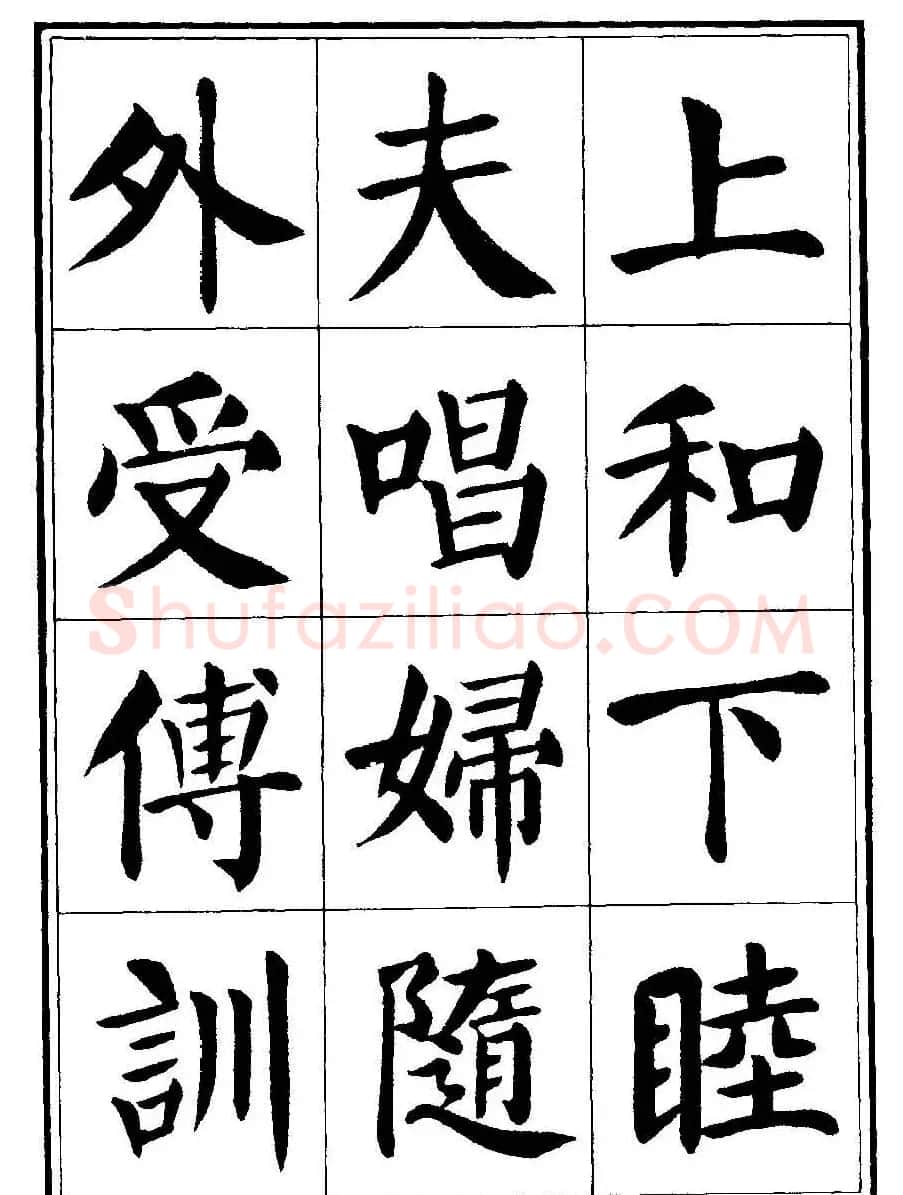 上和下睦
夫唱婦隨
外受傅訓
Shufaziliao.COM